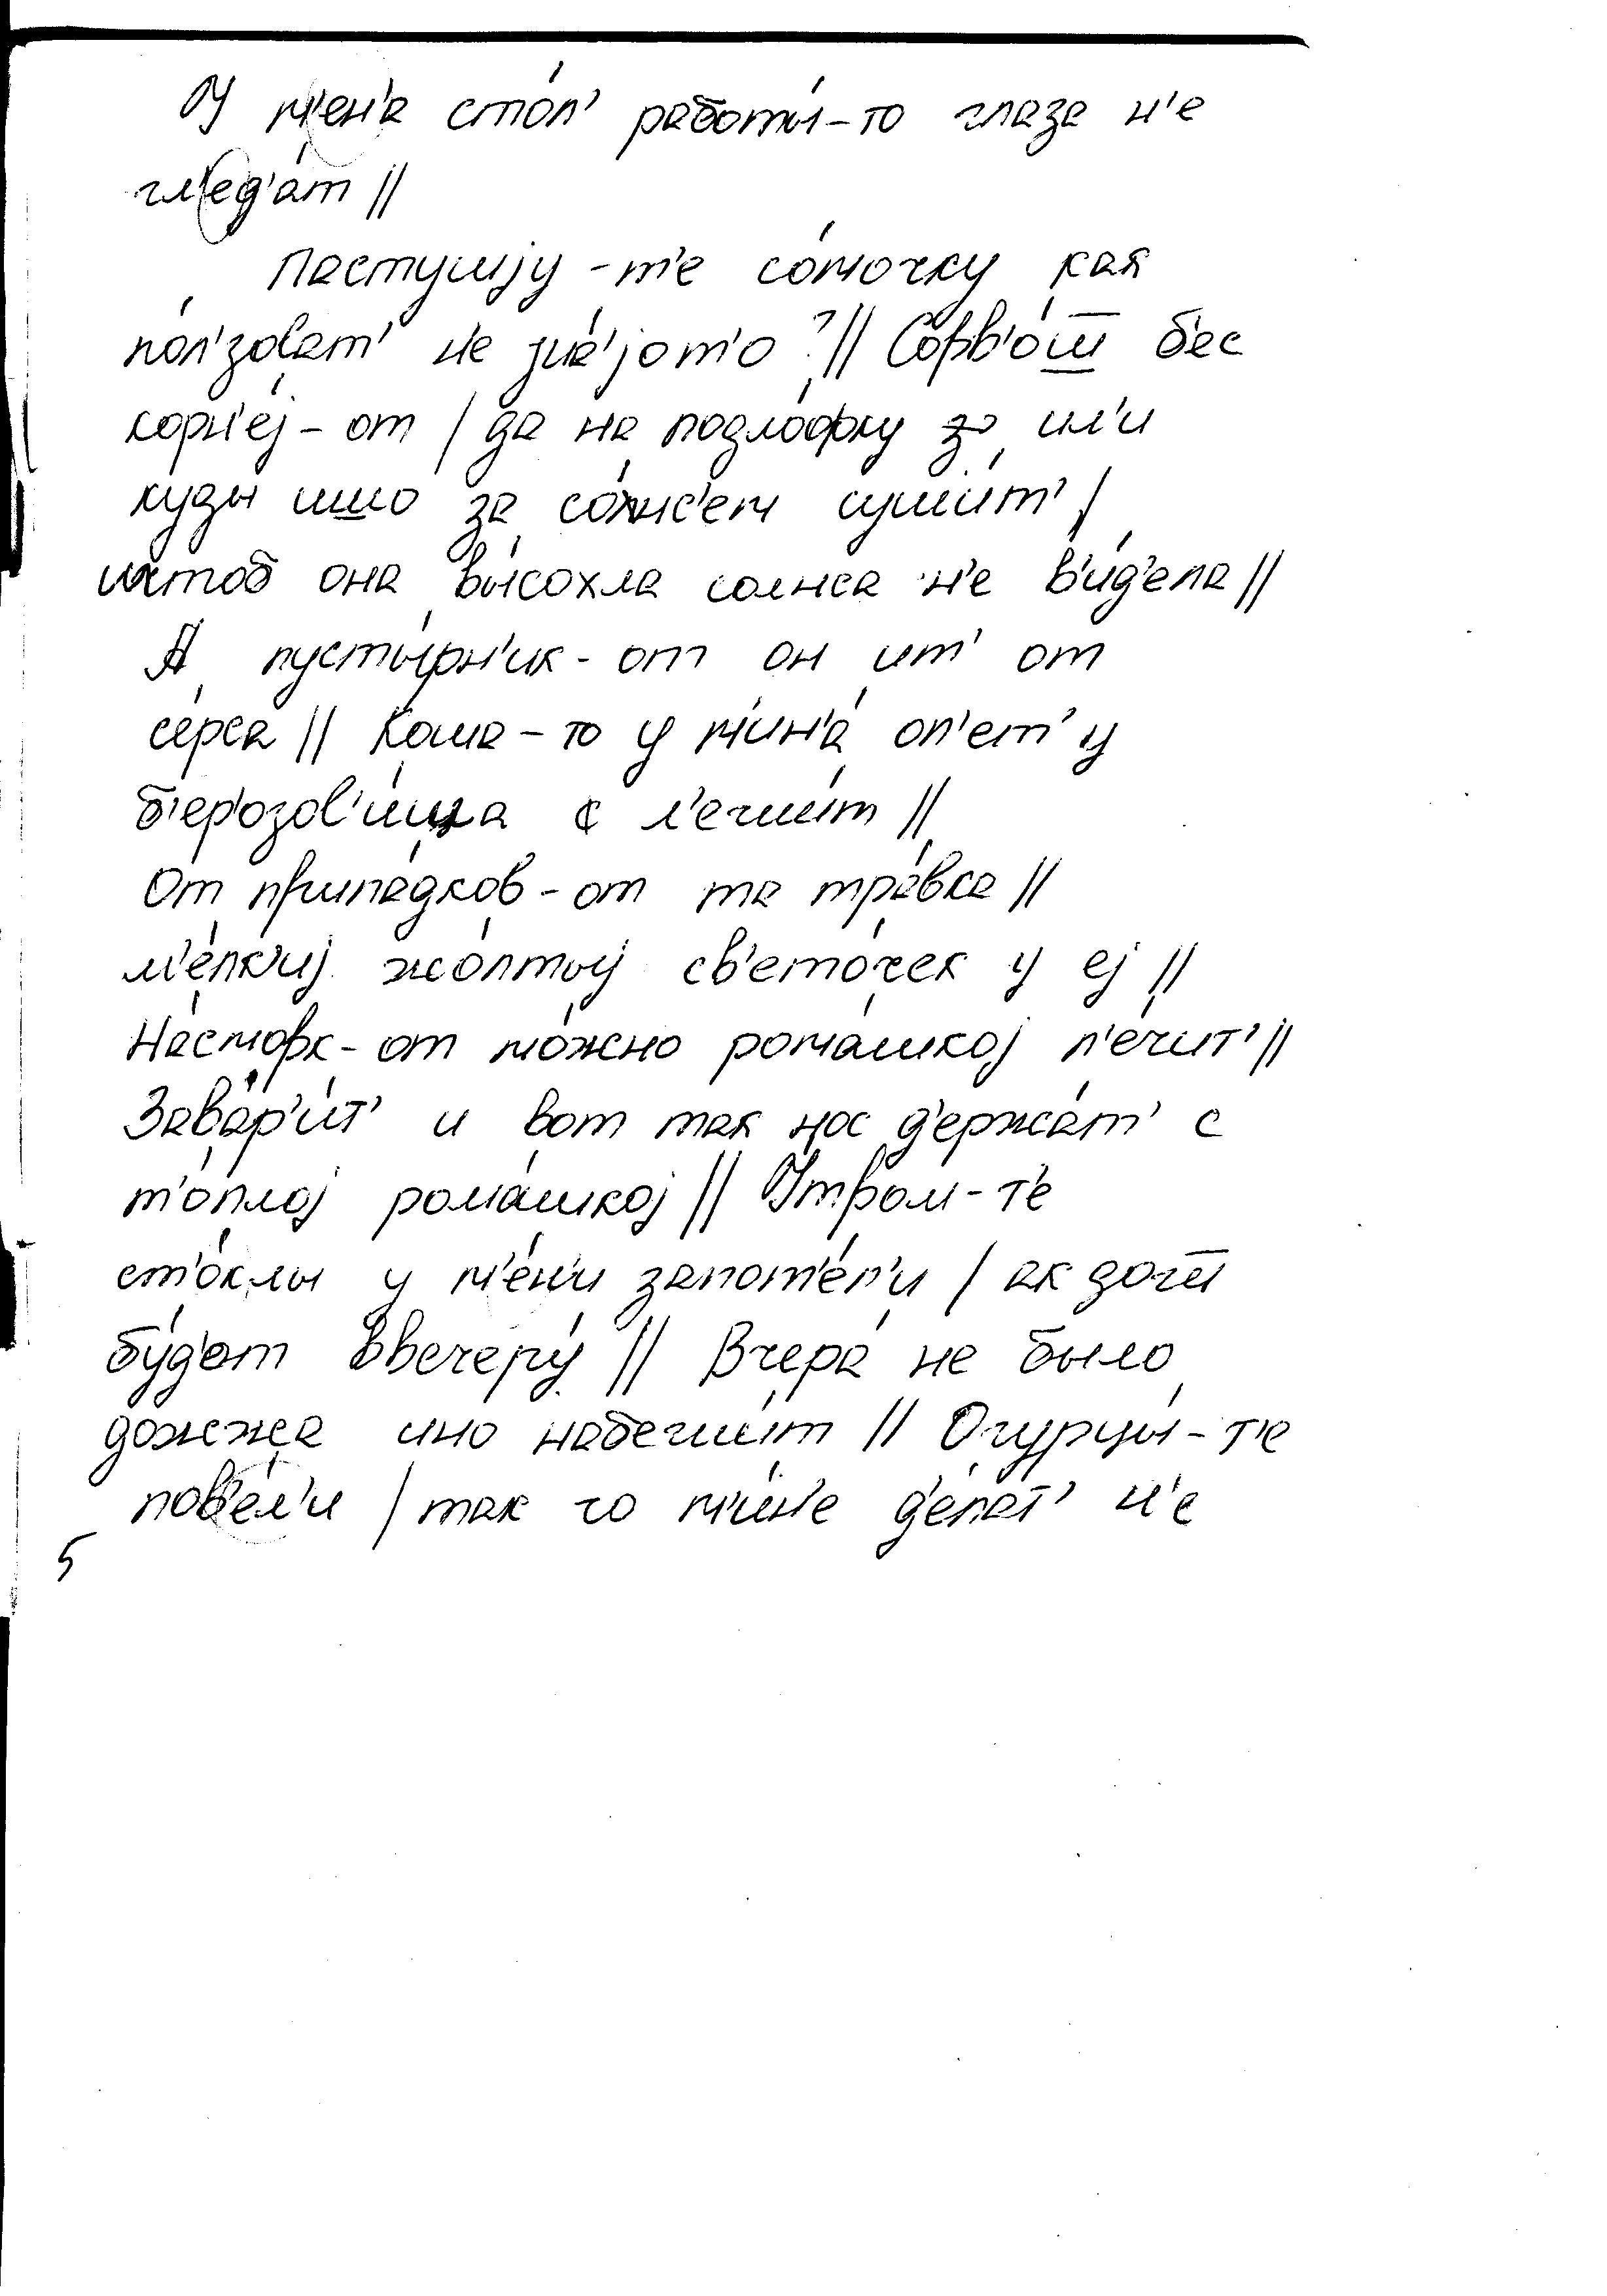 У м'ен'а сто́л' работы́-то глаза н'е
гл'ед'а́т ||
Пастушју-т'е со́мочку как
по́л'зоват' н'е зна́'јот'о? || Сорв'о́ш бес
корн'еј-от / да на подло́фку ил'и
куды ишшо за со́лнс'ем суши́т' /
штоб она вы́сохла солнса н'е в'и́д'ела ||
А пусты́рн'ик-от он ит' от
се́рса || Коша-то у м'ин'а́ оп'ет' у
б'ер'озов'ища л'ечи́т ||
От припа́дков-от та тра́вка ||
м'е́лк'иј жо́лтыј св'ето́чек у еј ||
На́сморк-от мо́жно рома́шкој л'ечит' ||
Завар'и́т' и вот так нос д'ержа́т' с
т'о́плој рома́шкој || У́тром-т'е
ст'о́клы у м'ен'и запот'е́л'и / ак дощ
бу́д'от вечеру́ || Вчера́ не было
дожжа ино набежи́т || Огурцы́-т'е
пов'е́л'и / так чо м'ин'е д'е́лат' н'е
5